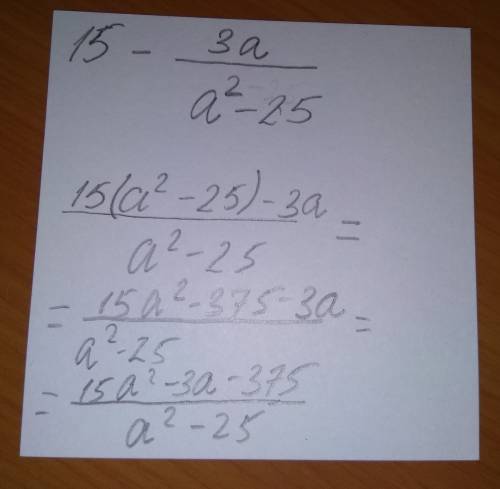 15 - 3a / a² - 25
15(a² - 25) - 3a / a² - 25 =
= 15a² - 375 - 3a / a² - 25 =
= 15a² - 3a - 375 / a² - 25